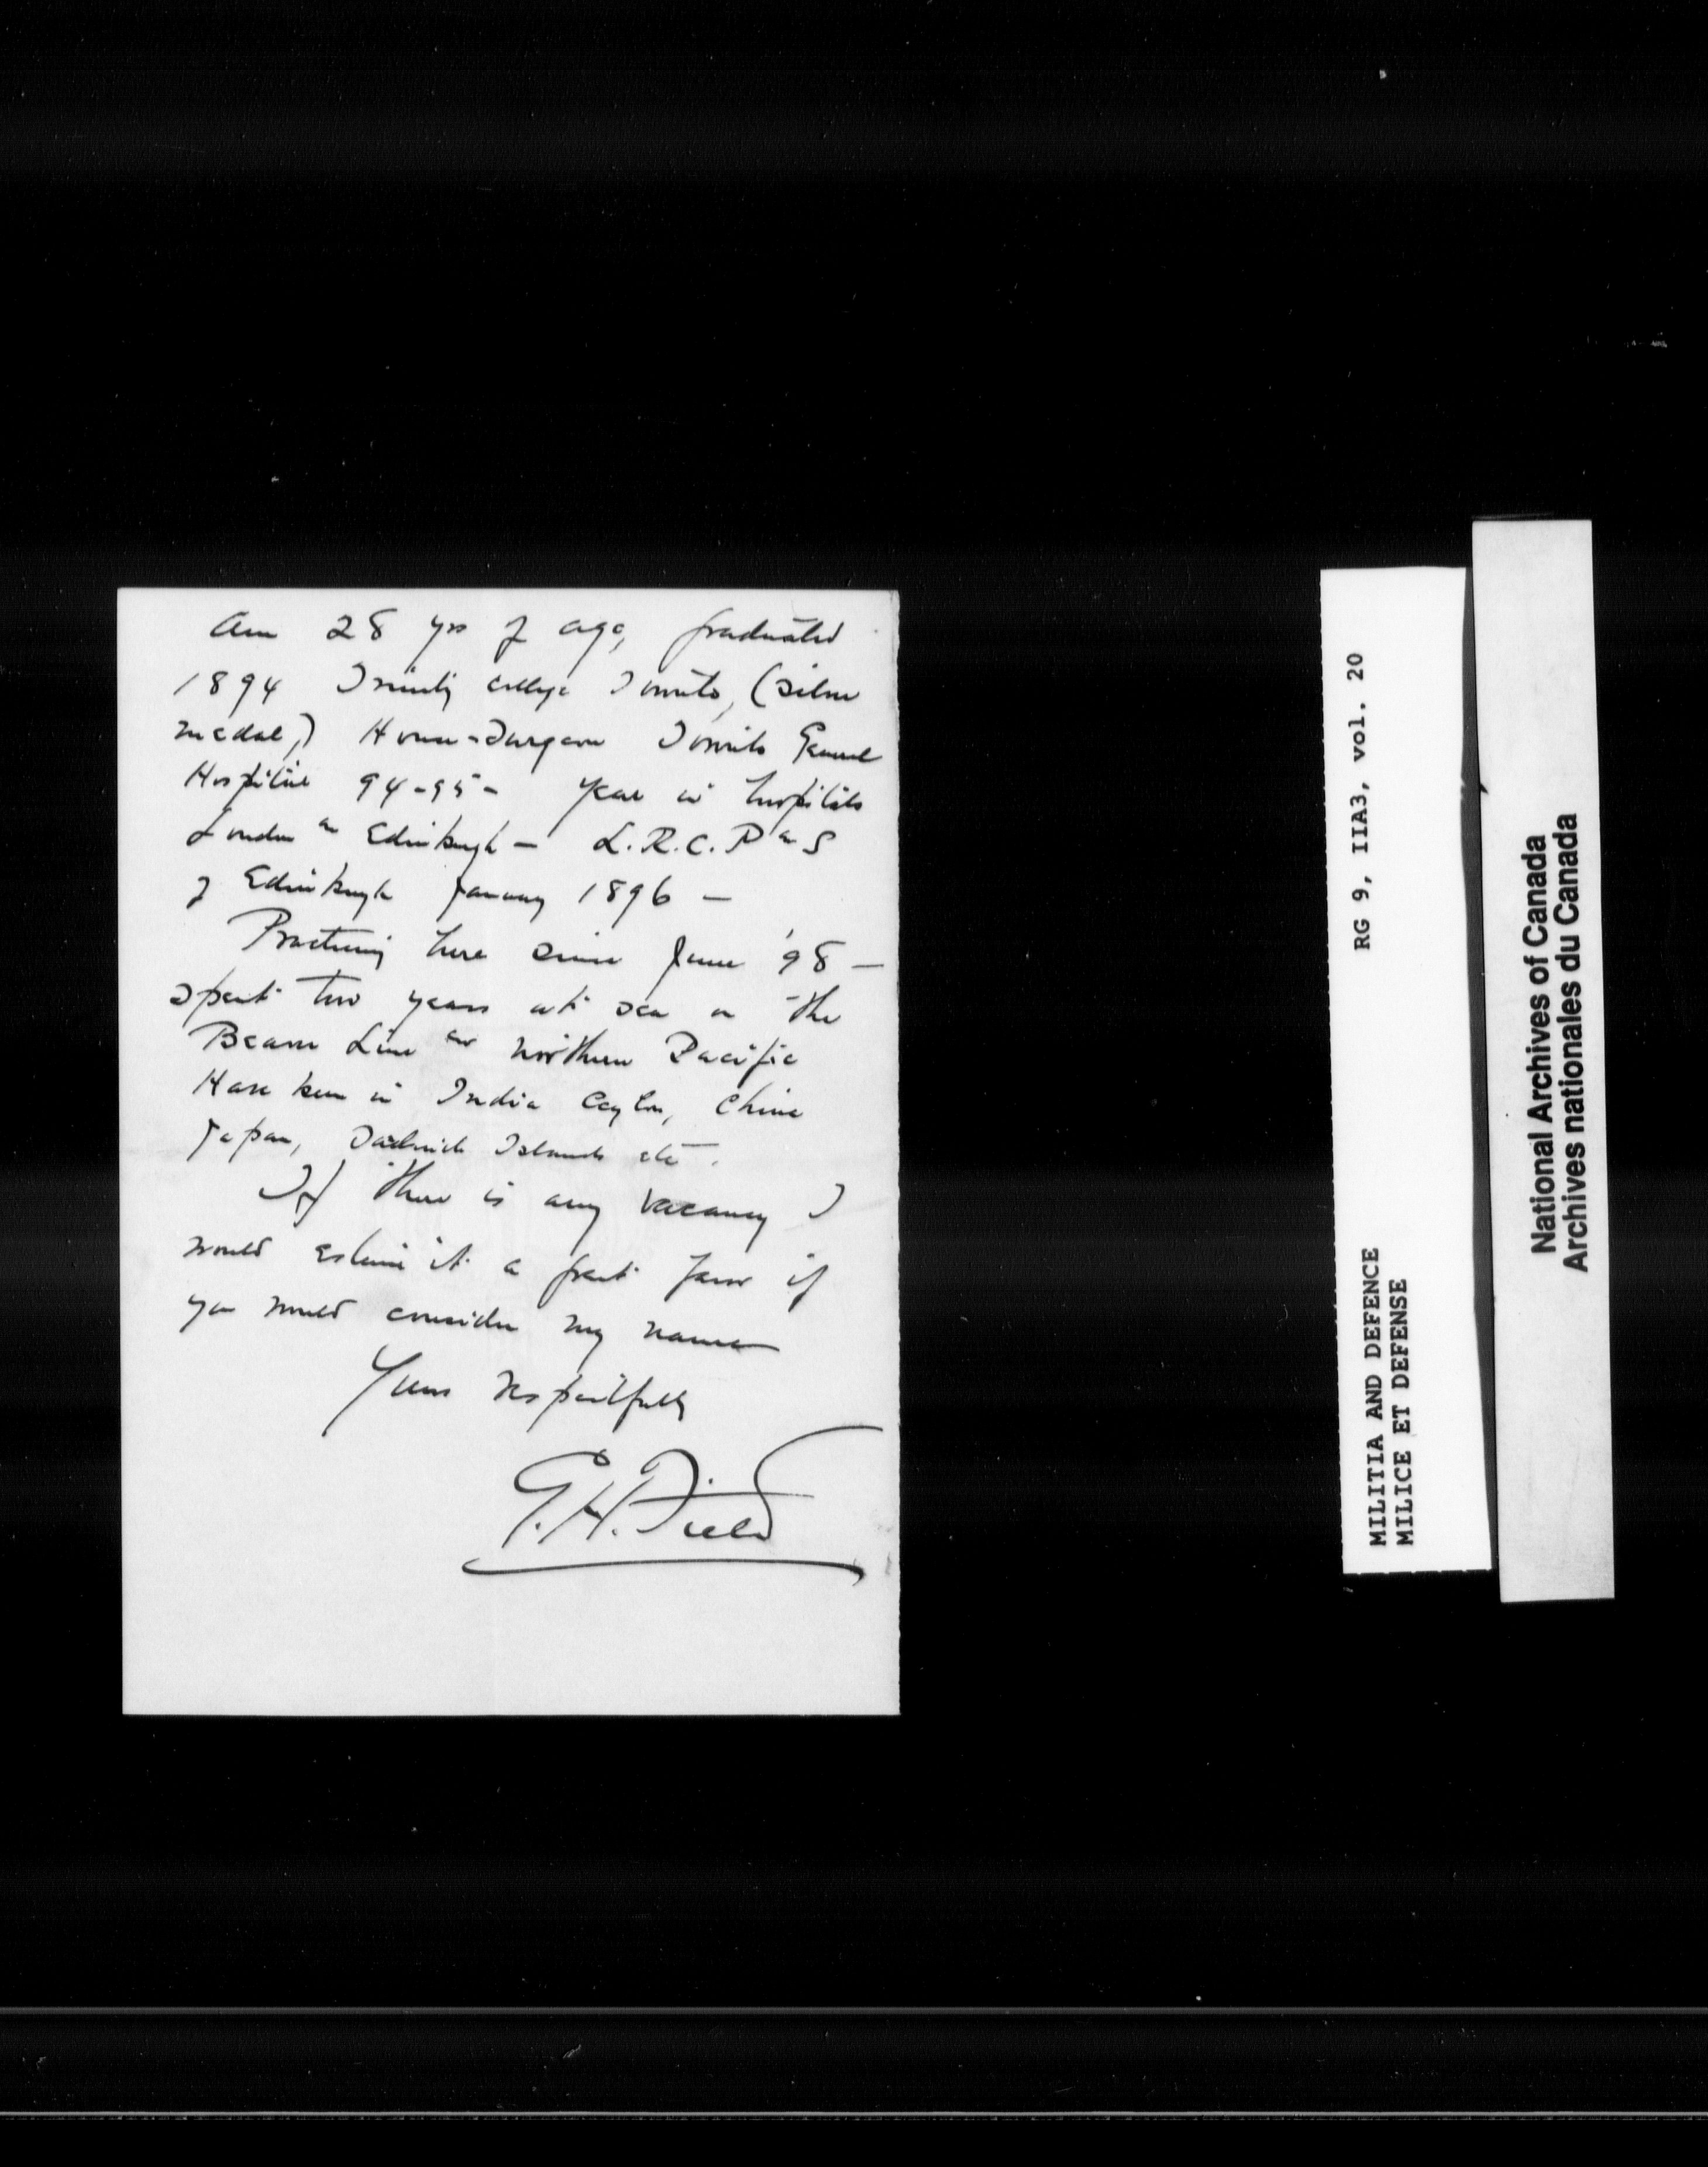 Am 28 yrs of age, graduated
1894 Trinity College Toronto, (silver
medal,) House-Surgeon Toronto General
Hospital 94-95- Year in hospitals
London an Edinburgh - L.R.C.P an S
of Edinburgh January 1896 -
Practising here since June '98 -
spent two years at sea on the
Line an Northern Pacific
Have been in India Ceylon, China
Japan, Sandwich Islands etc.
If there is any vacancy I
would esteem it a great favor if
you would consider my name
Yours respectfully
G. H. Field
MILITIA AND DEFENCE RG 9, IIA3, vol. 20
MILICE ET DEFENSE
National Archives of Canada
Archives nationales du Canada